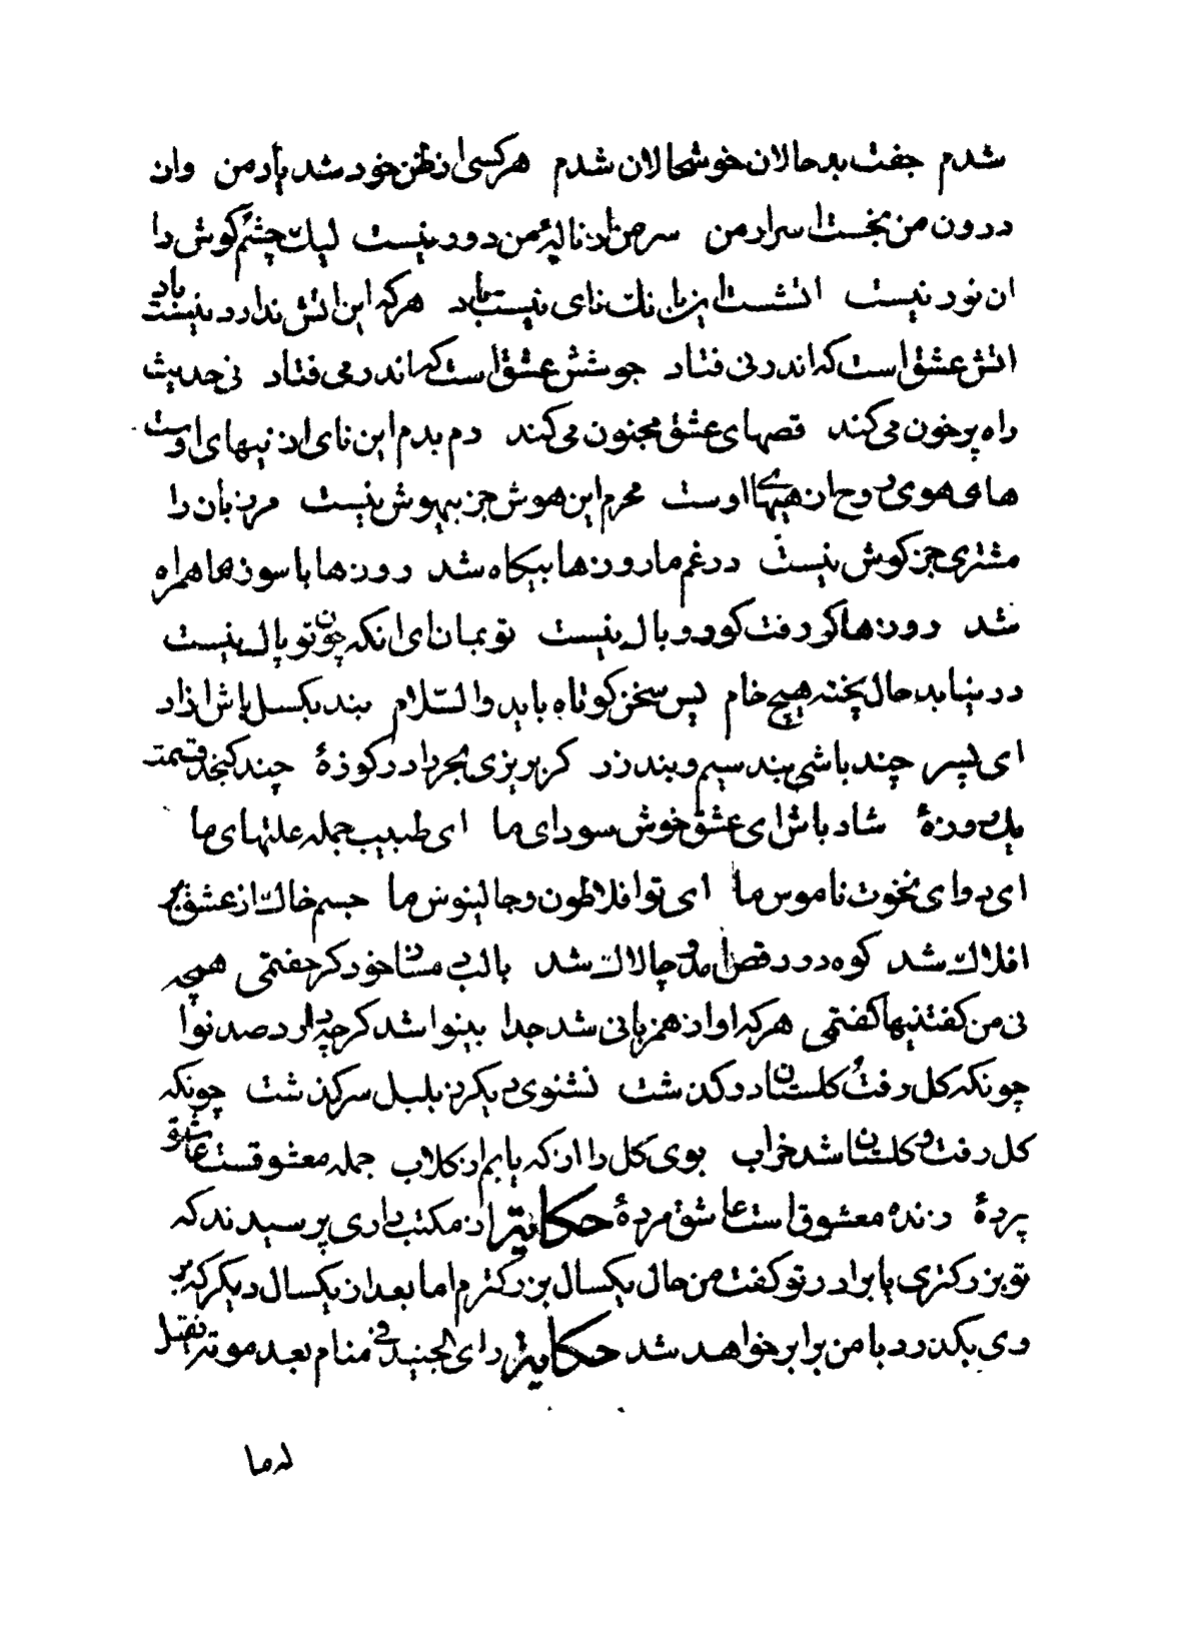 شدم جفت بدحالان خوشحالان شدم هرکسی از ظن خود شد یار من وان
درون من نجست اسرار من سر من از نالهٔ من دور نیست لیک چشم کوش را
ان نور نیست اتشست این بانک نای نیست باد هرکه این اتش ندارد نیست باد
اتش عشق است که اندر نی فتاد جوشش عشق است که اندر می فتاد نی حدیث
راه پرخون می کند قصهای عشق مجنون می کند دم بدم این نای از نیهای اوست
های هوی روح از هیهای اوست محرم این هوش جز بیهوش نیست مر زبان را
مشتری جز کوش نیست در غم ما روزها بیکاه شد روزها با سوزها همراه
شد روزها کر رفت کو رو بال نیست تو بمان ای انکه چون تو پال نیست
در نیابد حال پخته هیچ خام پس سخن کوتاه باید والسّلام بند بکسل باش ازاد
ای پسر چند باشی بند سیم و بند زر کر بریزی بحر را در کوزهٔ چند کنجد قسمت
یک روزهٔ شاد باش ای عشق خوش سودای ما ای طبیب جمله علتهای ما
ای دوای نخوت ناموس ما ای تو افلاطون و جالینوس ما جسم خاک از عشق بر
افلاک شد کوه در رقص امد و چالاک شد بالب دمساز خود کر جفتمی همچه
نی من کفتنیها کفتمی هرکه او از همزبانی شد جدا بینوا شد کرچه دارد صد نوا
چونکه کل رفت و کلستان درکذشت نشنوی دیکر ز بلبل سرکذشت چونکه
کل رفت و کلستان شد خراب بوی کل را از که یابم از کلاب جمله معشوقست عاشق
پردهٔ زنده معشوق است عاشق مردهٔ حکایة از مکتب داری پرسیدند که
تو بزرکتری یا برادر تو کفت من حال یکسال بزرکترم اما بعد از یکسال دیکر که بر
وی بکذرد با من برابر خواهد شد حکایة رای الجنید فی منام بعد موته فقیل
له ما